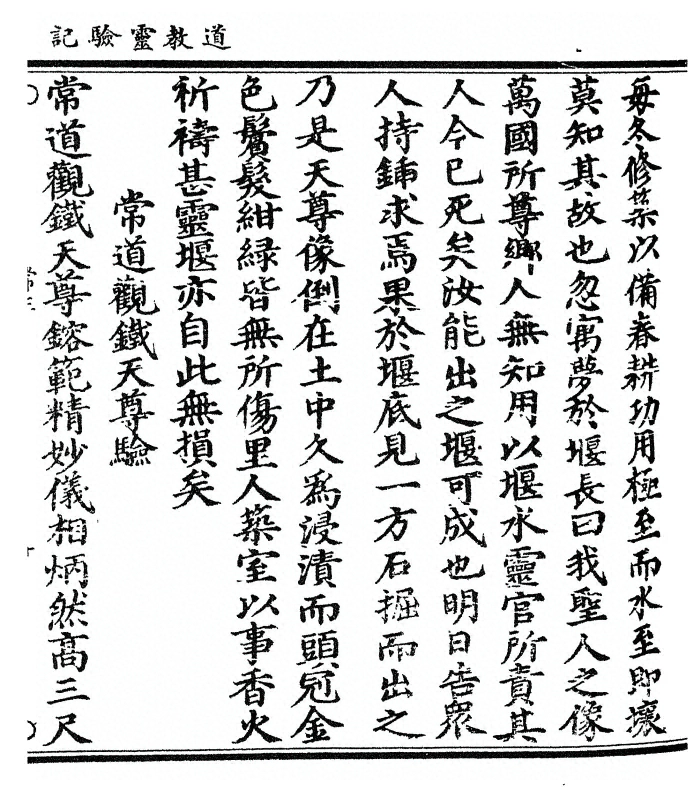 道教靈驗記
每冬修築以備春耕功用極至而水至即壞
莫知其故也忽寓夢於堰長曰我聖人之像
萬國所尊鄉人無知用以堰水靈官所責其
人今已死矣汝能出之堰可成也明日告衆
人持鍤求焉果於堰底見一方石掘而出之
乃是天尊像倒在土中久爲浸漬而頭冠金
色鬢髮紺緑皆無所傷里人築室以事香火
祈禱甚靈堰亦自此無損矣
常道觀鐵天尊驗
常道觀鐵天尊鎔範精妙儀相炳然高三尺